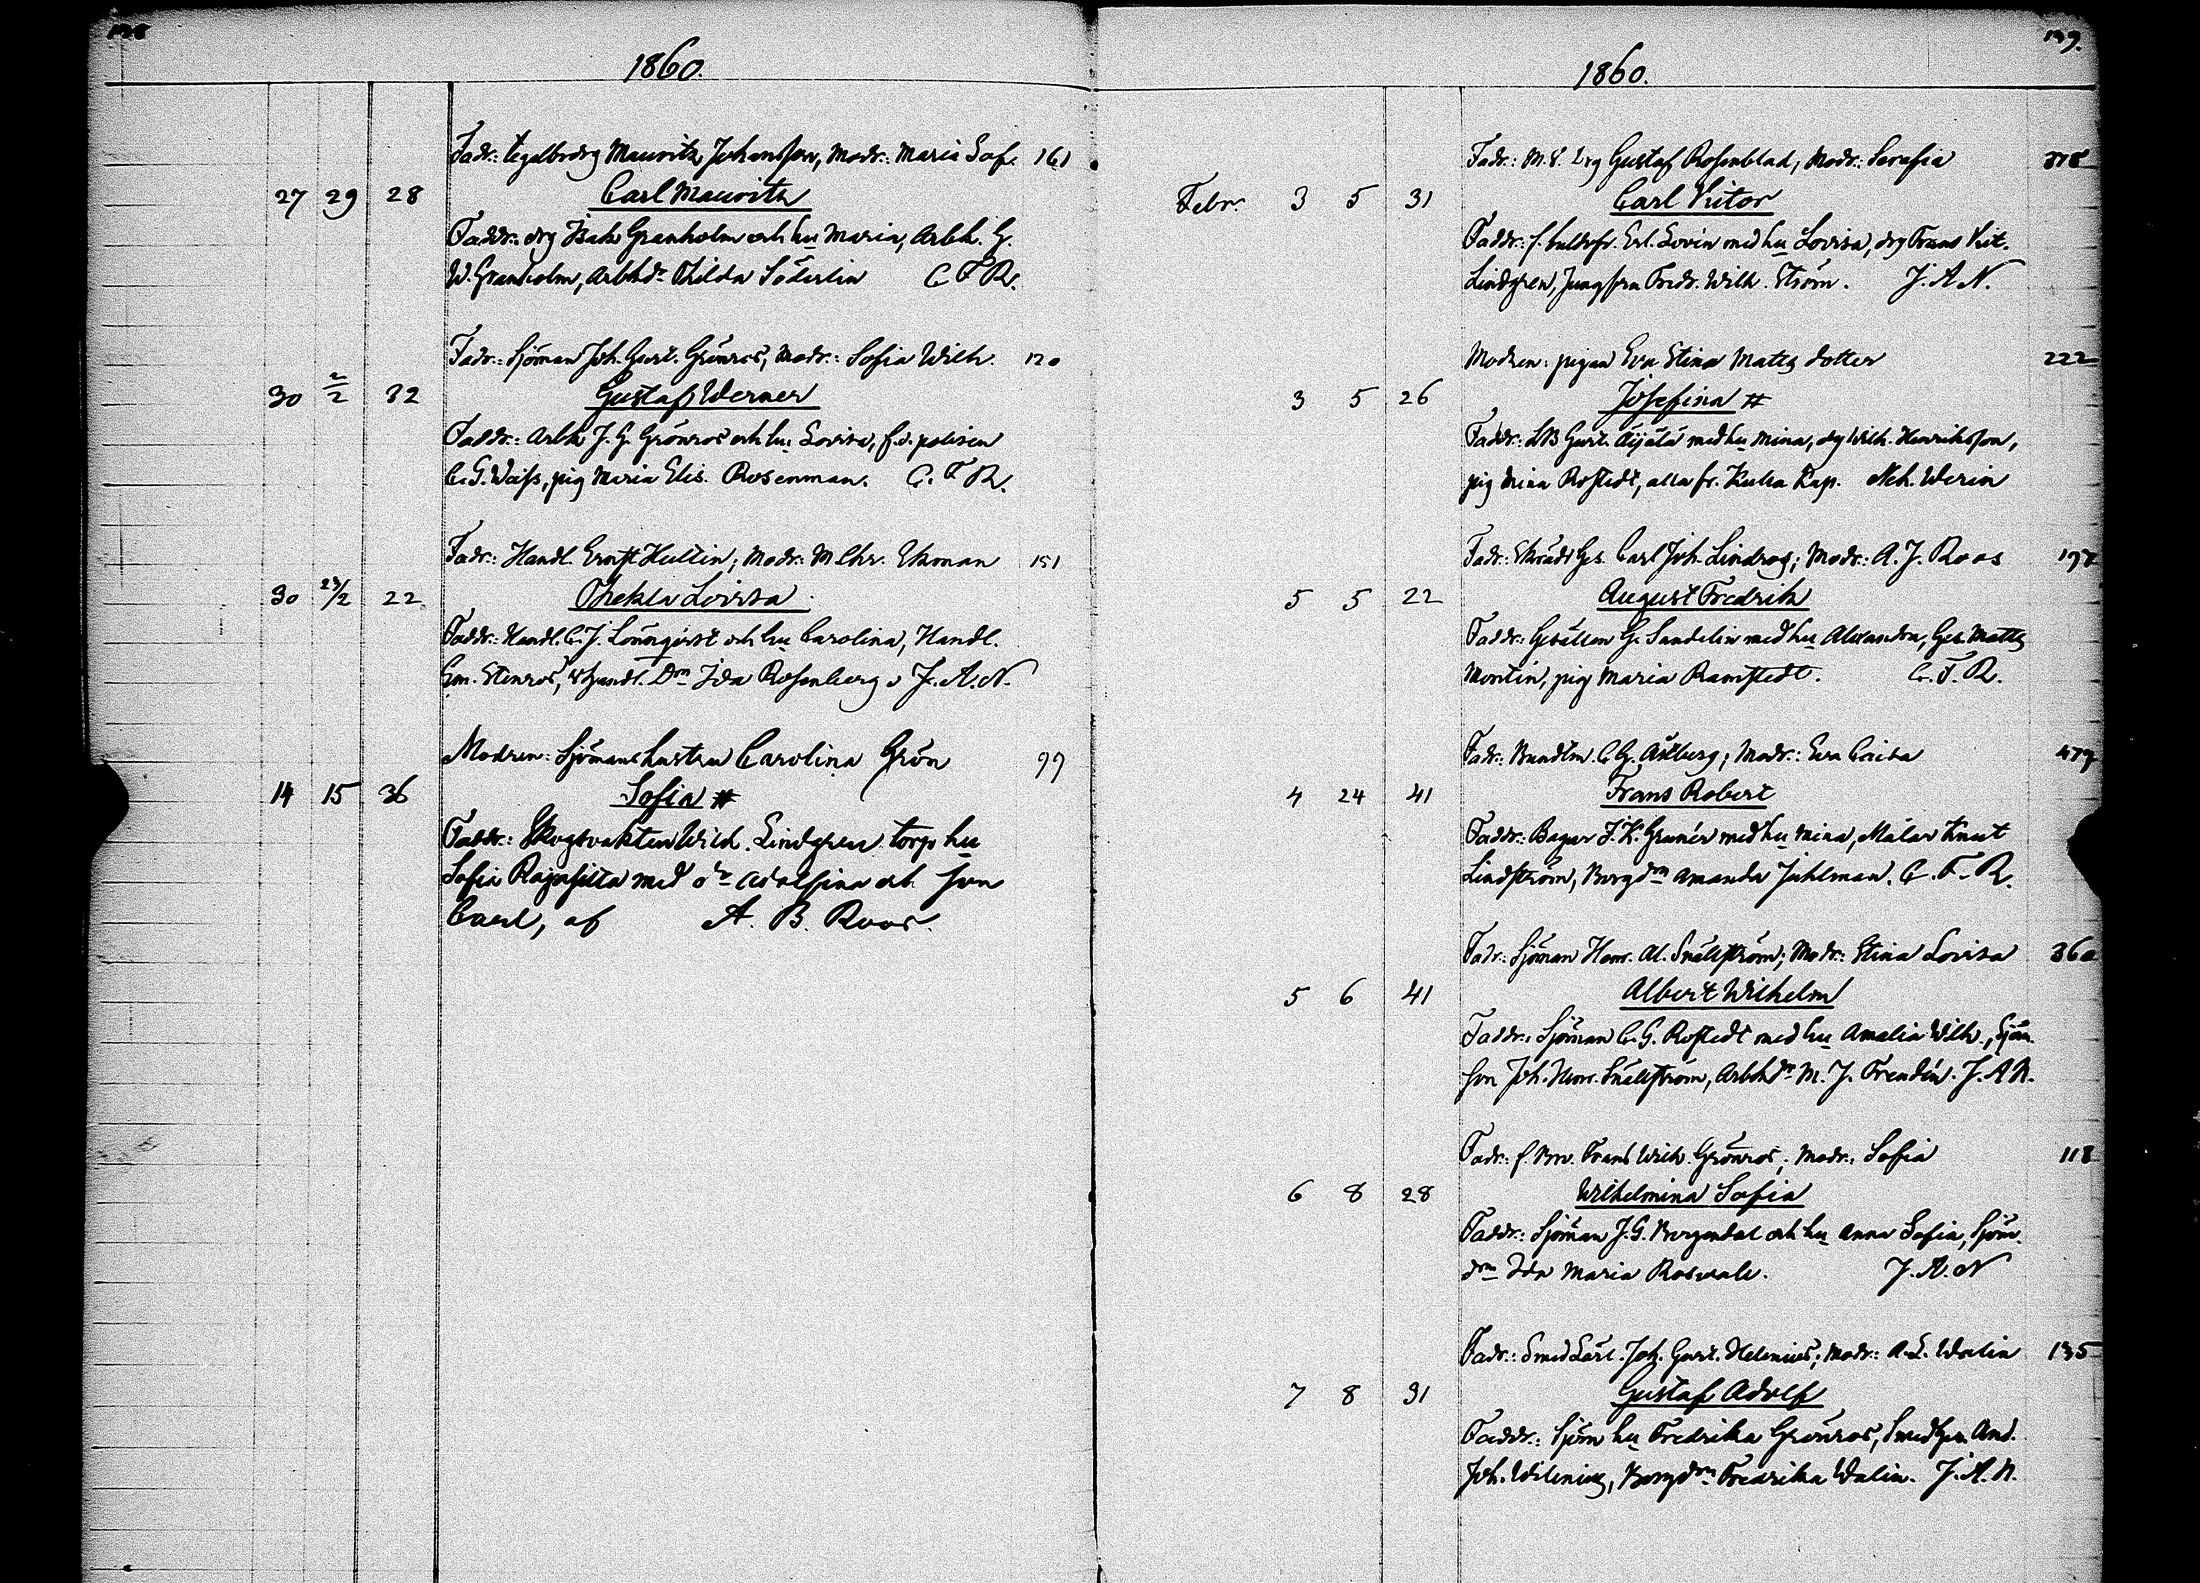 1860.
Fadr: tegelbrdrg Mauritz Johansson, Modr: Maria Sof. 161
27 29 28 Carl Mauritz
Faddr: drg Isak Granholm och hu Maria, Arbk. G.
W. Granholm, Arbkdr Thilda Söderlin C F R.
Fadr: Sjöman Joh. Gust. Grönros, Modr: Sofia Wilh. 120
30 2/2 32 Gustaf Werner
Faddr: Arbk J. G. Grönros och hu Lovisa, f.d. polisen
C. G. Weiss, pig Maria Elis. Rosenman. C. F. R.
Fadr: Handl. Ernst Hultin; Modr: M Chr. Ekman 151
30 23/2 22 Thekla Lovisa
Faddr: Handl. C. J. Lönnqvist och hu Carolina, Handl.
Em. Stenros, Handl. Dm Ida Rosenberg J. A. N.
Modren: Sjömanshustru Carolina Grön 99
14 15 36 Sofia #
Faddr: Skogvakten Wilh. Lindgren torp hu
Sofia Rajasilta med dr Adolfina och son
Carl, af A. B. Roos.
139.
1860.
Fadr: M. S. drg Gustaf Rosenblad, Modr: Serafia 318
Febr. 3 5 31 Carl Victor
Faddr: f. Erl. Lovén med hu Lovisa, drg Frans Vict.
Lindgren, Jungfrun Fredr. Wilh. Ström. J. A N.
Modren: pigan Eva Stina Matts dotter 222
3 5 26 Josefina #
Faddr: LB Gust. Äijälä med hu Mina, drg Wilh. Henriksson,
pig Mina Rostedt, alla fr. Kap. Werin
Fadr: Skräd Ges. Carl Joh. Lindroos; Modr: A. J. Roos
5 5 22 August Fredrik
Faddr: Gesällen G. Sandelin med hu Alexandra, Ges. Matts
Montin, pig Maria Ramstedt. C. F. R.
Fadr: C G. Åkberg; Modr: Eva Caisa 479
4 24 41 Frans Robert
Faddr: Bagar J. K. Grunér med hu Mina, Målar Knut
Lindström, Borgdm Amanda Juhlman. C. F. R.
Fadr: Sjöman Henr. Al. Snällström; Modr: Stina Lovisa 360
5 6 41 Albert Wilhelm
Faddr: Sjöman C. G. Rostedt med hu Amalia Wilh., Sjöm.
son Joh. Henr. Snällström, Arbkdr M. J. Frendén. J. A N.
Fadr: f. Frans Wilh. Grönros; Modr: Sofia 118
6 8 28 Wilhelmina Sofia
Faddr: Sjöman J. G. Borgendal och hu Anna Sofia, Sjöm.
dm Ida Maria Roswall. J. A. N
Fadr: Smed Lärl. Joh. Gust. Helenius; Modr: A. L. Walin 135
7 8 31 Gustaf Adolf
Faddr: Sjöm hu Fredrika Grönros, Smedges. And.
Joh. Wilenius, Borgdm Fredrika Walin. J. A. N.